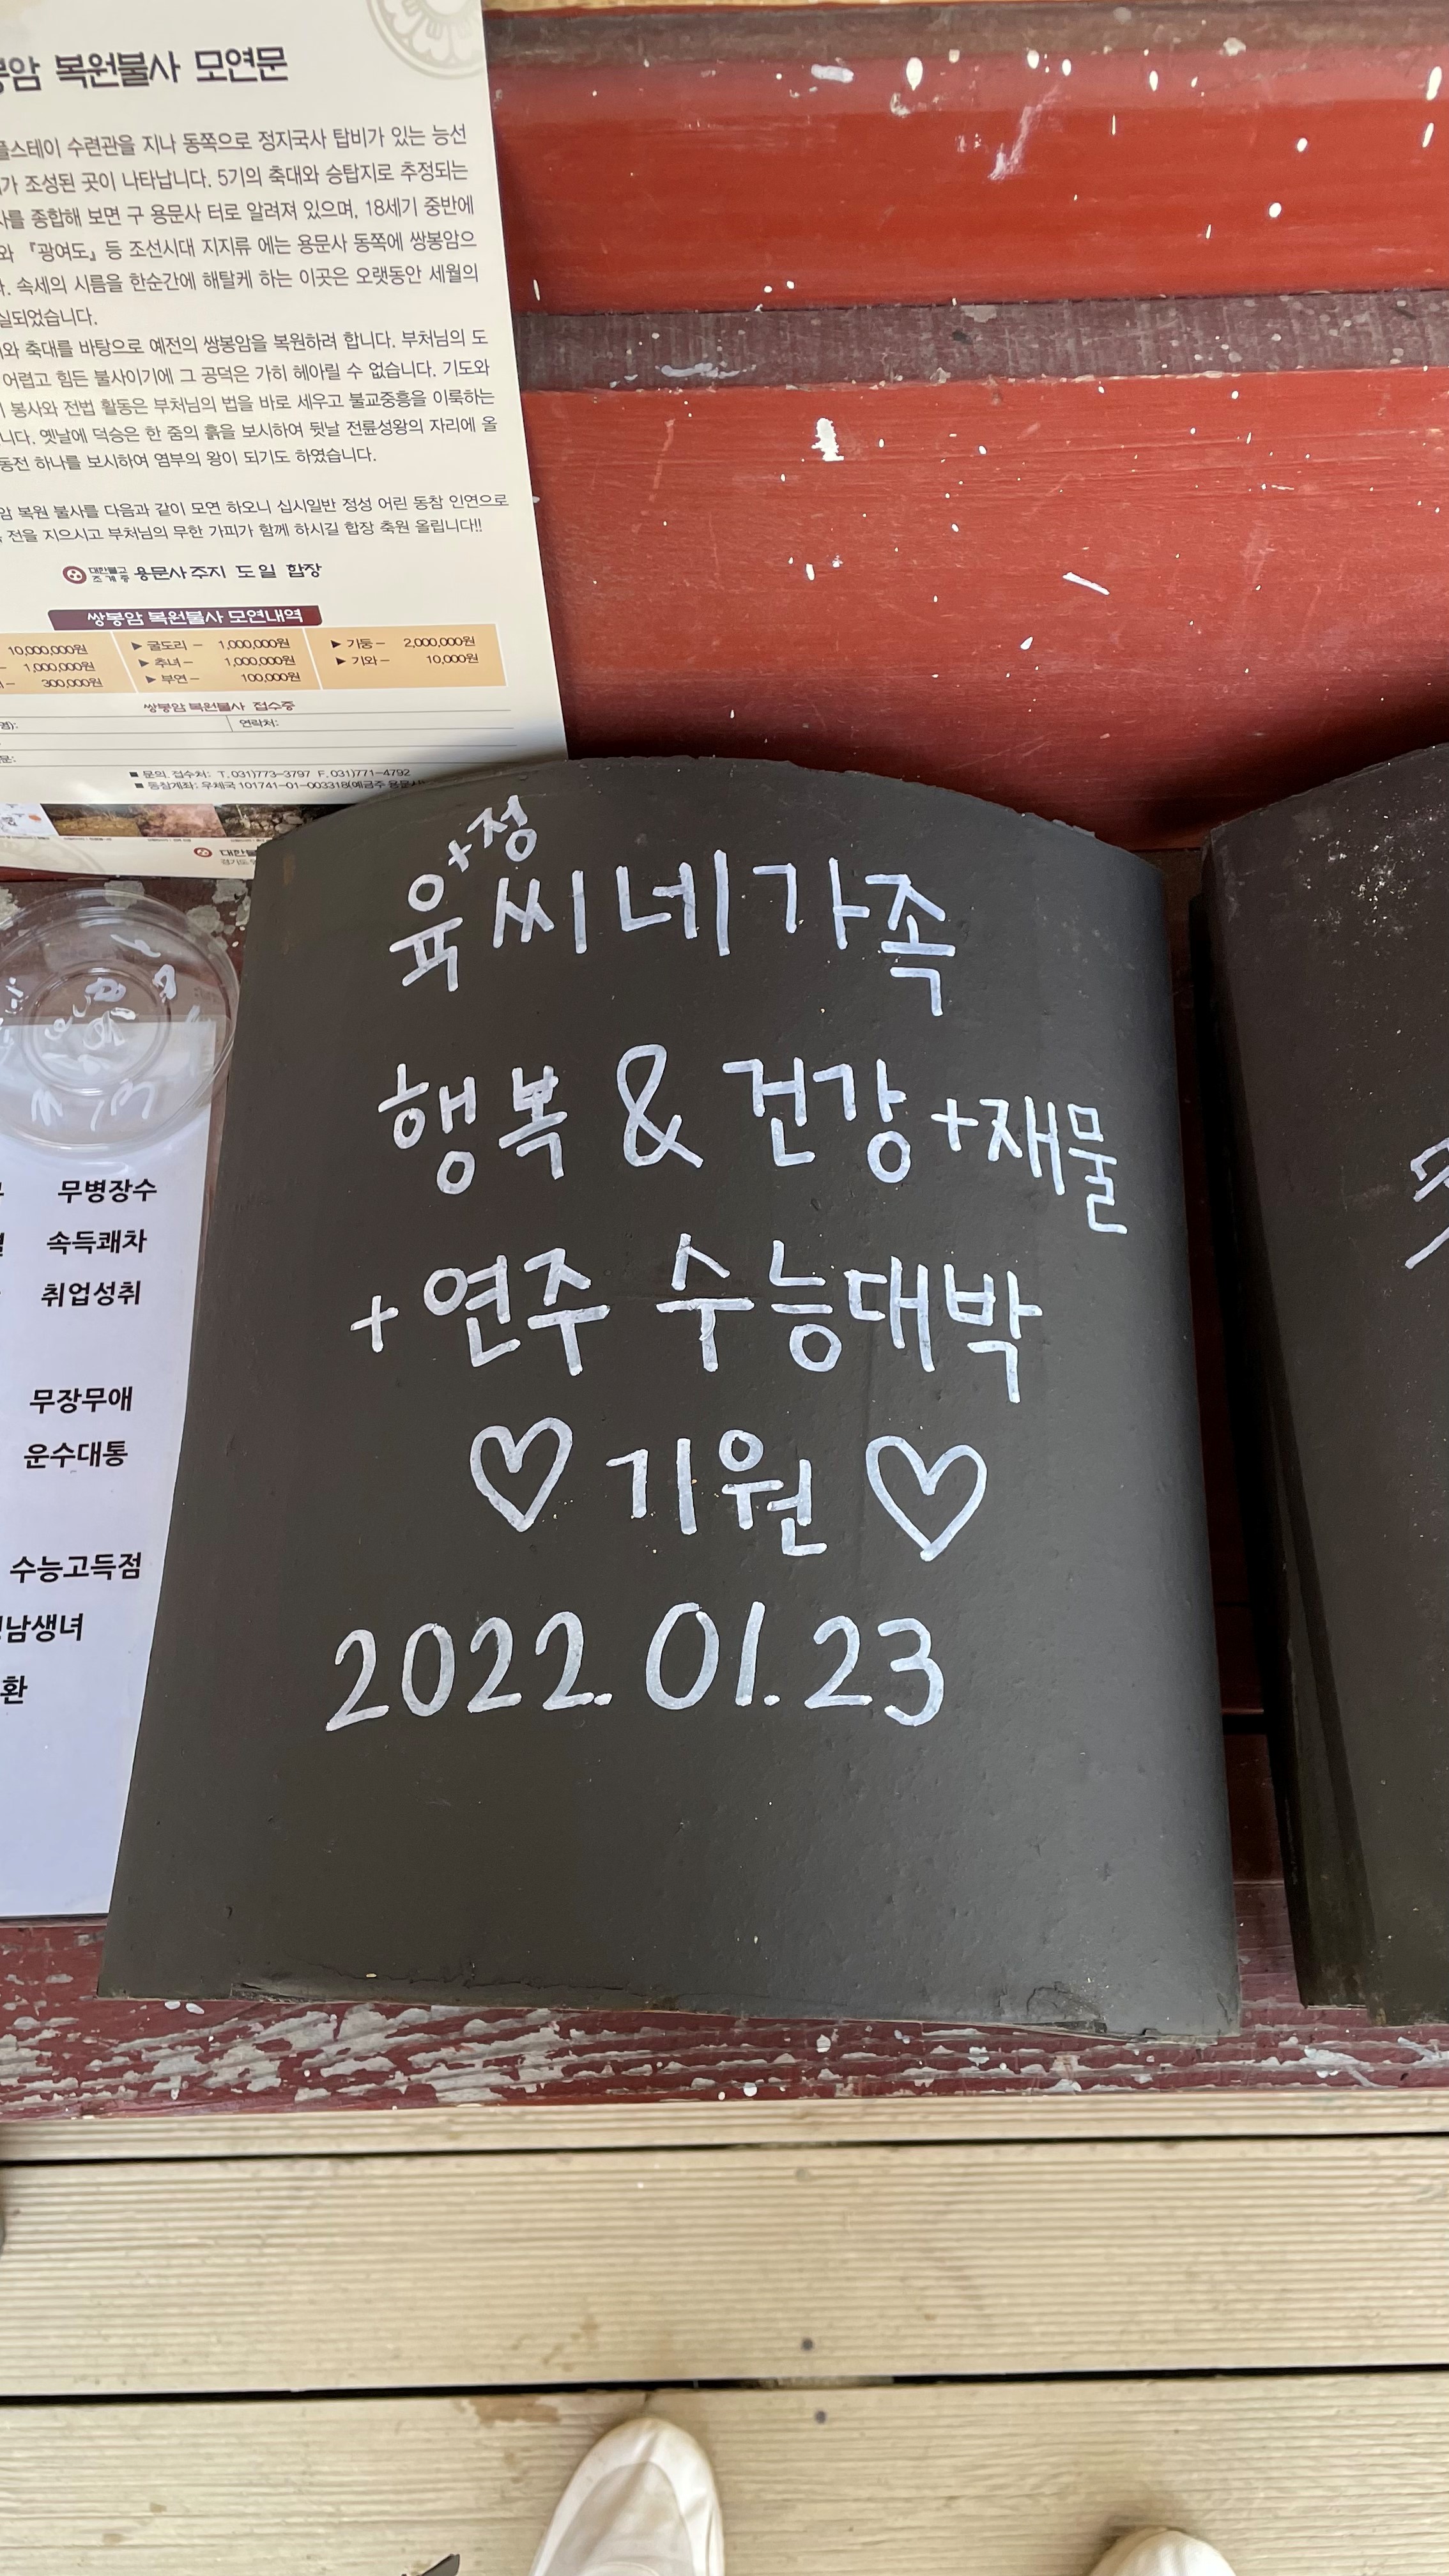 봉암 복원불사 모연문
플스테이 수련관을 지나 동쪽으로 정지국사 탑비가 있는 능선
가 조성된 곳이 나타납니다. 5기의 축대와 승탑지로 추정되는
를 종합해 보면 구 용문사 터로 알려져 있으며, 18세기 중반에
와 『광여도』 등 조선시대 지지류 에는 용문사 동쪽에 쌍봉암으
다. 속세의 시름을 한순간에 해탈케 하는 이곳은 오랫동안 세월의
실되었습니다.
와 축대를 바탕으로 예전의 쌍봉암을 복원하려 합니다. 부처님의 도
어렵고 힘든 불사이기에 그 공덕은 가히 헤아릴 수 없습니다. 기도와
봉사와 전법 활동은 부처님의 법을 바로 세우고 불교중흥을 이룩하는
니다. 옛날에 덕승은 한 줌의 흙을 보시하여 뒷날 전륜성왕의 자리에 올
동전 하나를 보시하여 염부의 왕이 되기도 하였습니다.
암 복원 불사를 다음과 같이 모연 하오니 십시일반 정성 어린 동참 인연으로
전을 지으시고 부처님의 무한 가피가 함께 하시길 합장 축원 올립니다!!
대한불교 조계종 용문사 주지 도일 합장
쌍봉암 복원불사 모연내역
10,000,000원 ▶ 굴도리 – 1,000,000원 ▶ 기둥 – 2,000,000원
– 1,000,000원 ▶ 추녀 – 1,000,000원 ▶ 기와 – 10,000원
– 300,000원 ▶ 부연 – 100,000원
쌍봉암 복원불사 접수증
명): 연락처:
문:
■ 문의. 접수처: T. 031)773-3797 F. 031)771-4792
■ 동참계좌: 우체국 101741-01-003318(예금주 용문사
대한불
경기도
+정
육씨네가족
행복 & 건강 +재물
+ 연주 수능대박
♡ 기원 ♡
2022. 01. 23
무병장수
속득쾌차
취업성취
무장무애
운수대통
수능고득점
남생녀
환